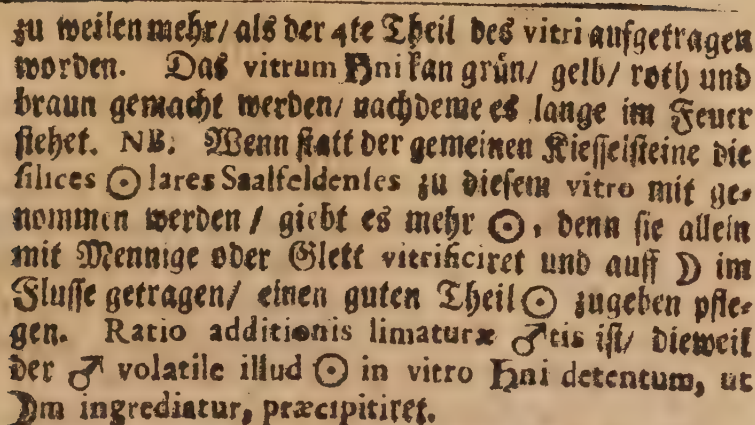 zu weilen mehr/ als der 4te Theil des vitri aufgetragen
worden. Das vitrum ♄ni kan grün/ gelb/ roth und
braun gemacht werden/ nachdeme es lange im Feuer
stehet. NB. Wenn statt der gemeinen Kiesselsteine die
silices ☉lares Saalfeldenses zu diesem vitro mit ge-
nommen werden/ giebt es mehr ☉, denn sie allein
mit Mennige oder Glett vitrificiret und auff ☽ im
Flusse getragen/ einen guten Theil ☉ zugeben pfle-
gen. Ratio additionis limaturæ ♂tis ist/ dieweil
der ♂ volatile illud ☉ in vitro ♄ni detentum, ut
☽m ingrediatur, præcipitiret.